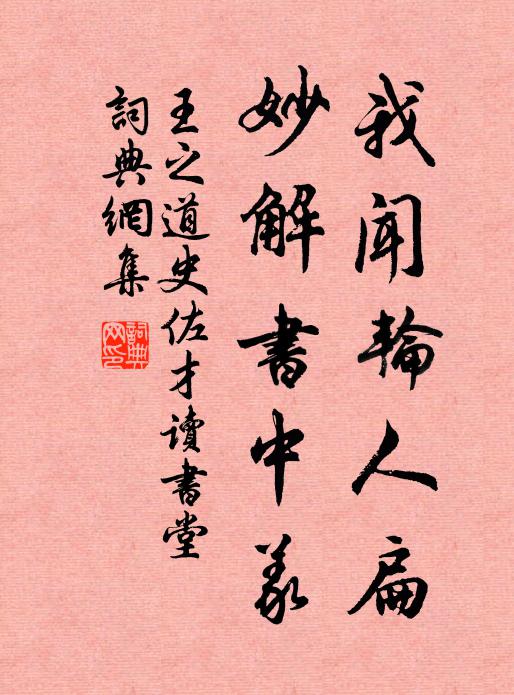 我聞輪人扁
妙解書中義
王之道史佐才讀書堂
詞典網集
詞典網印